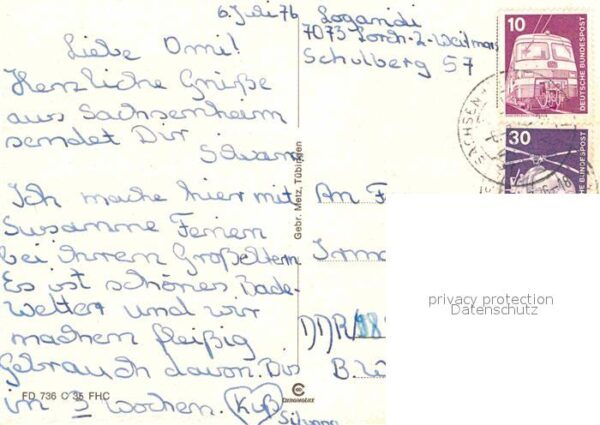 6. Juli 76
Liebe Omi!
Herzliche Grüße
aus Sachsenheim
sendet Dir
Ich mache hier mit
Susamme Ferien
bei ihrem Großeltern
Es ist schönes Bade-
Wetter und wir
machen fleißig
Gebrauch davon. Bis
in 3 Wochen. Kuß
Silvana
FD 736 C 35 FHC
Gebr. Metz, Tübingen
7073 Lorch-2-Weitmars
Schulberg 57
10
DEUTSCHE BUNDESPOST
30
BUNDESPOST
SACHSEN
An F
Irma
DDR
privacy protection
Datenschutz